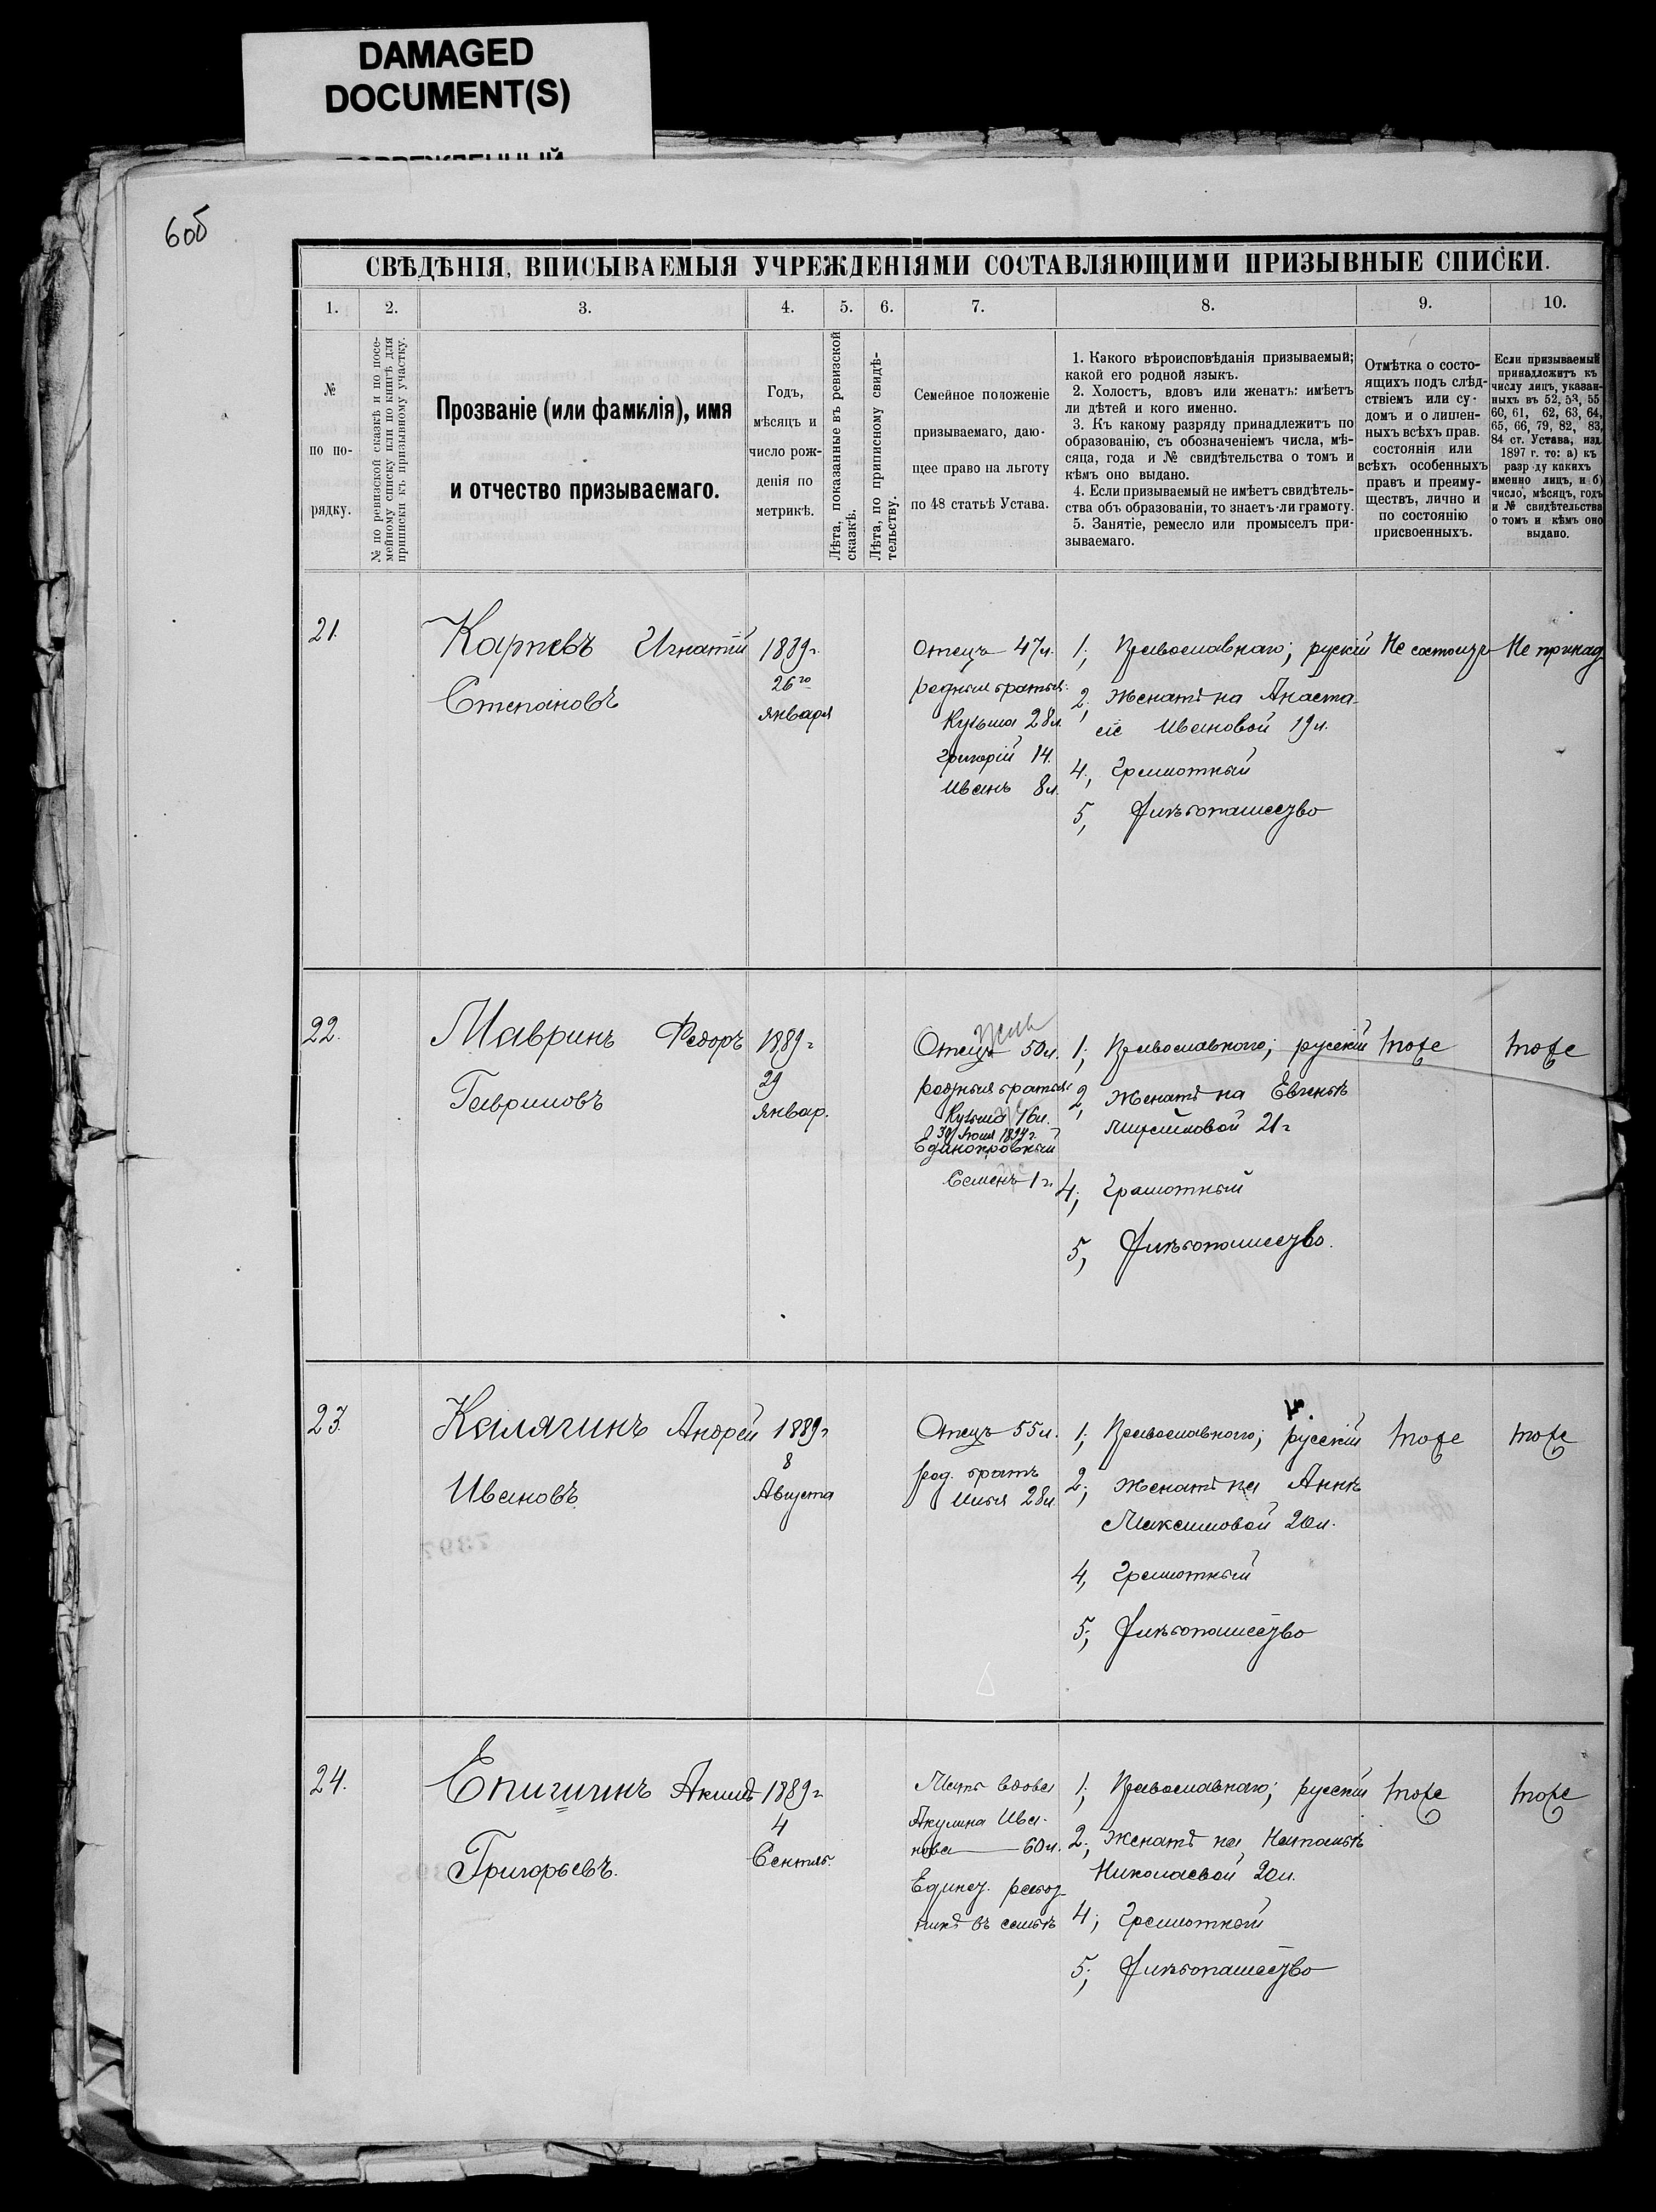 DAMAGED
DOCUMENT(S)
6об
СВѢДѢНІЯ, ВПИСЫВАЕМЫЯ УЧРЕЖДЕНІЯМИ СОСТАВЛЯЮЩИМИ ПРИЗЫВНЫЕ СПИСКИ.
1. 2. 3. 4. 5. 6. 7. 8. 9. 10.
№
по по-
рядку.
№ по ревизской сказкѣ и по посе-
мейному списку или по книгѣ для
приписки къ призывному участку.
Прозваніе (или фамилія), имя
и отчество призываемаго.
Годъ,
мѣсяцъ и
число рож-
денія по
метрикѣ.
Лѣта, показанные въ ревизской
сказкѣ.
Лѣта, по приписному свидѣ-
тельству.
Семейное положеніе
призываемаго, даю-
щее право на льготу
по 48 статьѣ Устава.
1. Какого вѣроисповѣданія призываемый;
какой его родной языкъ.
2. Холостъ, вдовъ или женатъ: имѣетъ
ли дѣтей и кого именно.
3. Къ какому разряду принадлежитъ по
образованію, съ обозначеніемъ числа, мѣ-
сяца, года и № свидѣтельства о томъ и
кѣмъ оно выдано.
4. Если призываемый не имѣетъ свидѣтель-
ства объ образованіи, то знаетъ-ли грамоту.
5. Занятіе, ремесло или промыселъ при-
зываемаго.
Отмѣтка о состо-
ящихъ подъ слѣд-
ствіемъ или су-
домъ и о лишен-
ныхъ всѣхъ прав.
состоянія или
всѣхъ особенныхъ
правъ и преиму-
ществъ, лично и
по состоянію
присвоенныхъ.
Если призываемый
принадлежитъ къ
числу лицъ, указан-
ныхъ въ 52, 53, 55
60, 61, 62, 63, 64,
65, 66, 79, 82, 83,
84 ст. Устава, изд.
1897 г. то: а) къ
разр-ду какихъ
именно лицъ, и б)
число, мѣсяцъ, годъ
и № свидѣтельства
о томъ и кѣмъ оно
выдано.
21.
Карпевъ Игнатій
Степановъ
1889г.
26го
января
Отецъ 47л.
родныя братья:
Кузьма 28л.
Григорій 14.
Иванъ 8л.
1; Православнаго; рускій
2; Женатъ на Анаста-
сіе Ивановой 19л.
4; Грамотный
5; Хлѣбопашество
Не состоитъ
Не принад.
22.
Мавринъ Федоръ
Гавриловъ
1889г
29
январ.
Отецъ 50л.
родныя братья
Кузьма 16л.
30 Июня 1894г.
Единокровный
Семенъ 1г.
1; Православнаго; русскій
2; Женатъ на Евгеньѣ
21г
4; Грамотный
5; Хлѣбопашество.
тоже
тоже
23.
Калягинъ Андрей
Ивановъ
1889г
8
Августа
Отецъ 55л.
род. братъ
Илья 28л
1; Православнаго; русскій
2; Женатъ на Аннѣ
Максимовой 20л.
4, Грамотный
5; Хлѣбопашество
тоже
тоже
24.
Епигинъ Акимъ
Григорьевъ.
1889г
4
Сентяб.
Мать вдова
Акулина Ива-
нова 60л.
Единст. работ-
никъ въ семьѣ
1; Православнаго; русскій
2; Женатъ на Натальѣ
Николаевой 20л.
4; Грамотный
5; Хлѣбопашество
тоже
тоже